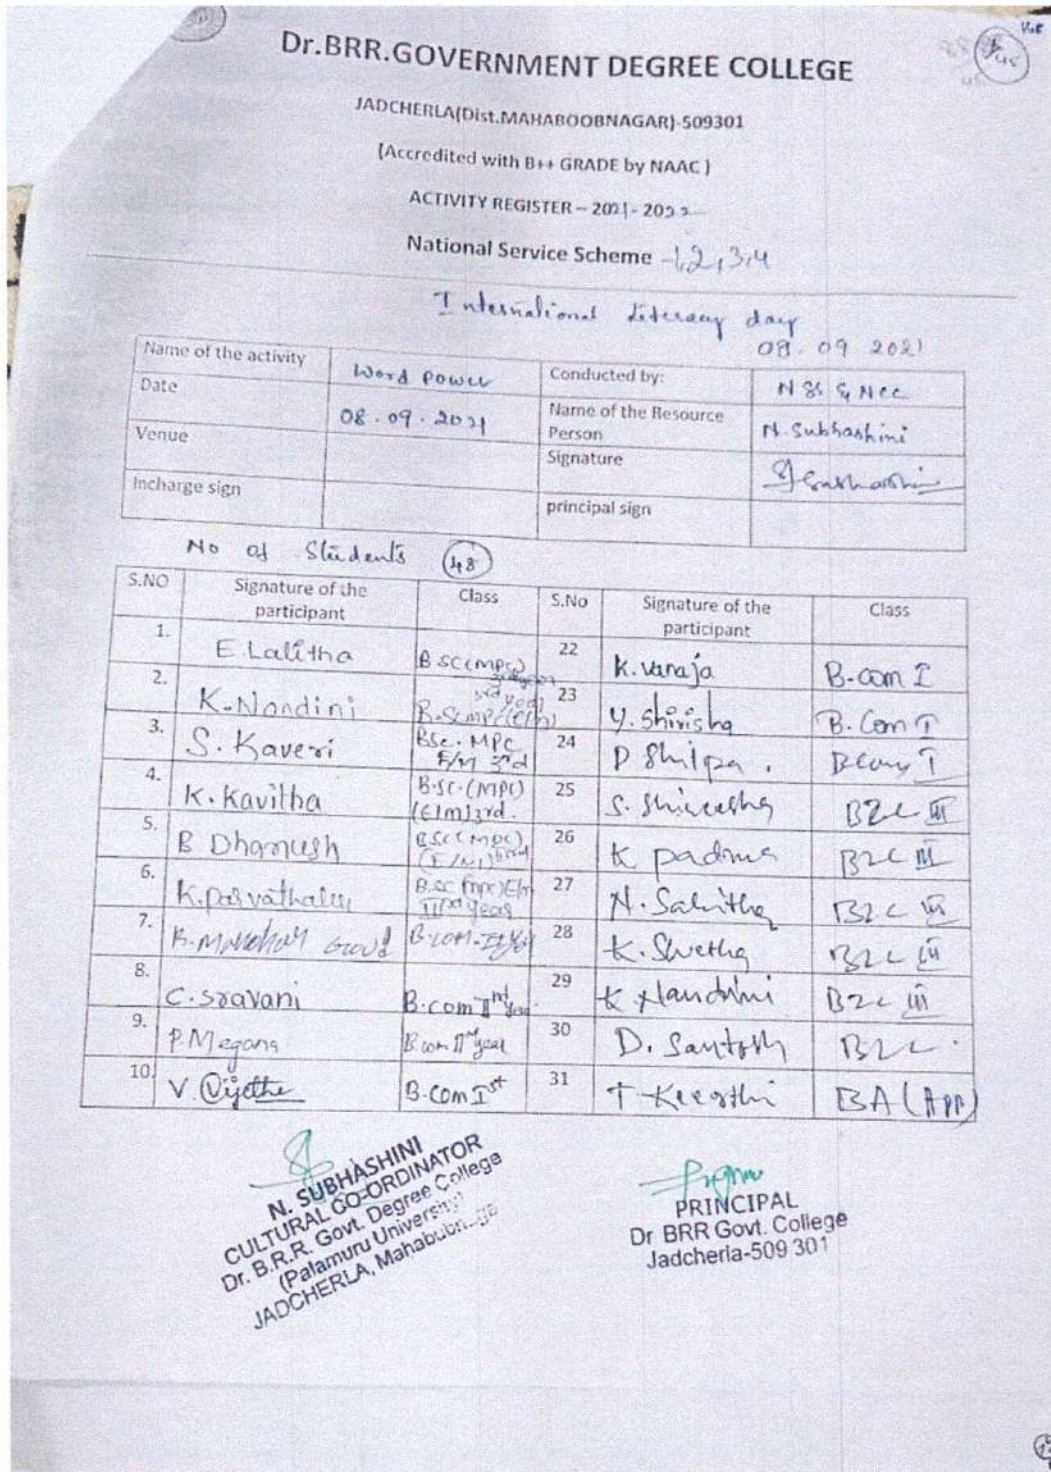 Dr.BRR.GOVERNMENT DEGREE COLLEGE
JADCHERLA(Dist.MAHABOOBNAGAR)-509301
(Accredited with B++ GRADE by NAAC )
ACTIVITY REGISTER – 2021 - 2022
National Service Scheme -1,2,3,4
International Literacy day
08.09 2021
Name of the activity Word Power Conducted by: NSS & NCC
Date 08.09.2021 Name of the Resource Person N. Subhashini
Venue Signature
Incharge sign principal sign
No of Students 48
S.NO Signature of the participant Class S.No Signature of the participant Class
1. E Lalitha B SC(MPC) 22 K. Vanaja B-com I
2. K. Nandini 3rd year 23 Y. Shirisha B. Com I
3. S. Kaveri BSc. MPC E/M 3rd 24 P Shilpa .
4. K. Kavitha B.SC.(MPC) (E/M)3rd. 25 S. BZC III
5. B Dhanush 26 K padma BZC III
6. K. Parvathalu 27 N. Sabitha BZC III
7. 28 K. Swetha BZC III
8. C. Sravani B.com IInd year. 29 K Nandini BZC III
9. P. Megana B.com IInd year 30 D. Santosh BZC .
10. V. B.COM Ist 31 T Keerthi BA (App)
N. SUBHASHINI
CULTURAL CO-ORDINATOR
Dr. B.R.R. Govt. Degree College
(Palamuru University)
JADCHERLA,
PRINCIPAL
Dr BRR Govt. College
Jadcherla-509 301